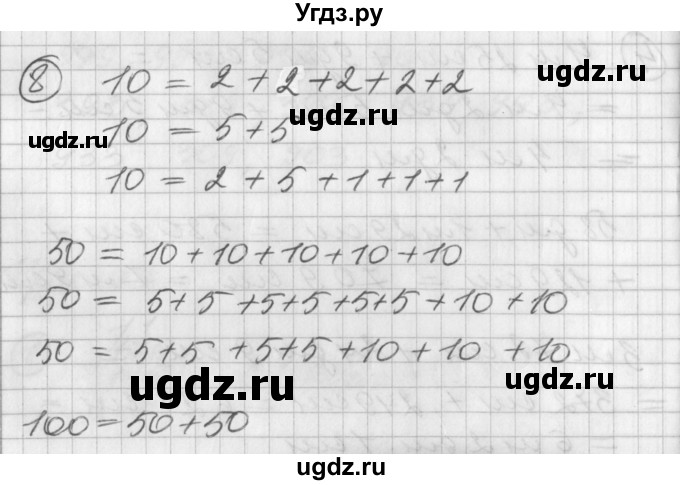 Угдз.ру
8 10 = 2 + 2 + 2 + 2 + 2
ugdz.ru
ugdz.ru
10 = 5 + 5
10 = 2 + 5 + 1 + 1 + 1
50 = 10 + 10 + 10 + 10 + 10
50 = 5 + 5 + 5 + 5 + 5 + 5 + 10 + 10
50 = 5 + 5 + 5 + 5 + 10 + 10 + 10
ugdz.ru
ugdz.ru
100 = 50 + 50
ugdz.ru